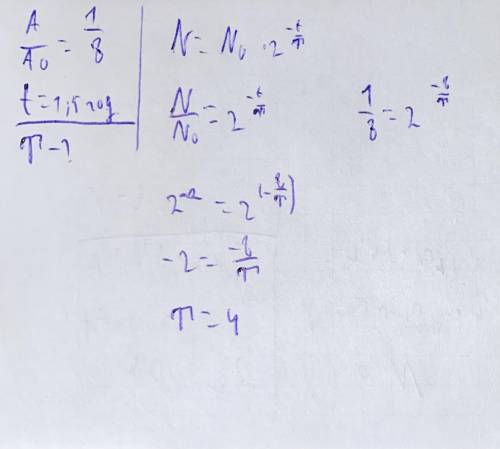 A/A₀ = 1/8
t = 1,5 год
T - ?
N = N₀ · 2^(-t/T)
N/N₀ = 2^(-t/T)
1/8 = 2^(-8/T)
2⁻² = 2^(-8/T)
-2 = -8/T
T = 4